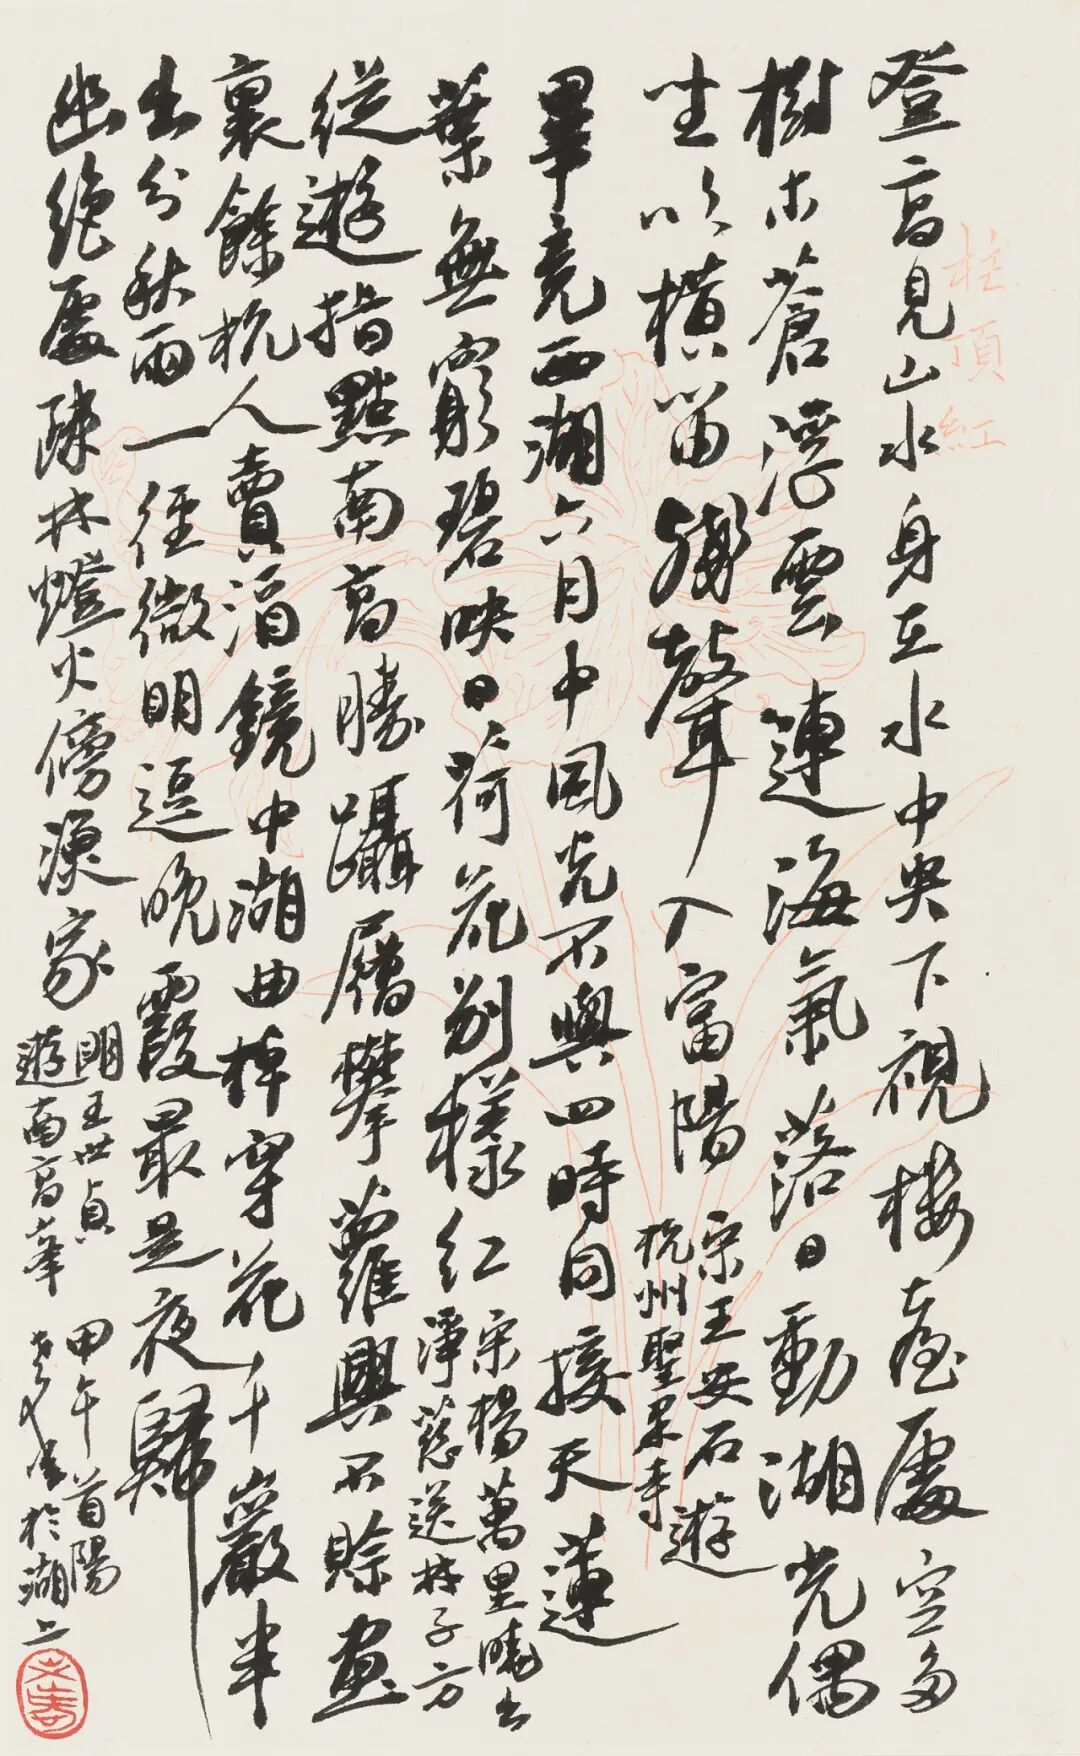 登高見山水身在水中央下視樓臺處空多
樹木蒼浮雲連海氣落日動湖光偶
坐吹橫笛殘聲入富陽
宋王安石遊
杭州聖果寺
畢竟西湖六月中風光不與四時同接天蓮
葉無窮碧映日荷花別樣紅
宋楊萬里曉出
淨慈送林子方
從遊指點南高勝躡屩攀蘿興不賒畫
裏餘杭人賣酒鏡中湖曲棹穿花千巖半
出分秋雨一徑微明逗晚霞最是夜歸
幽絕處疎林燈火傍漁家
明王世貞
遊南高峯
甲午首陽
於湖上
柱頂紅